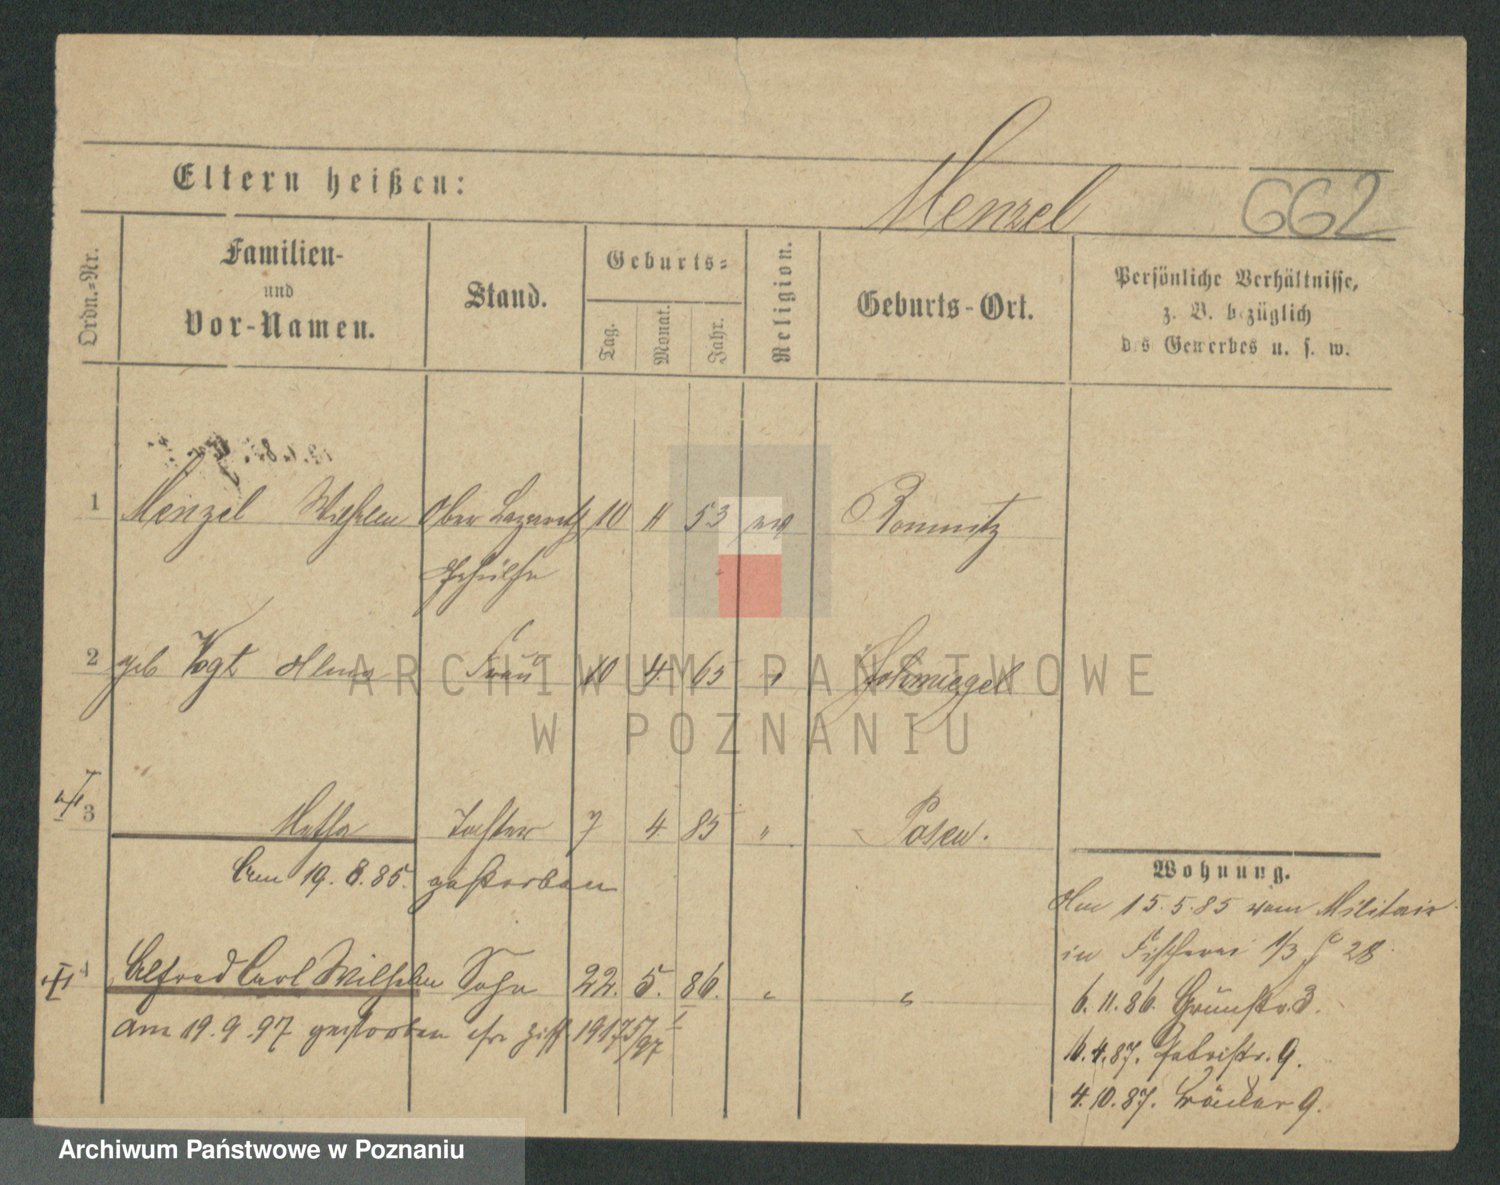 Eltern heißen:
Menzel
662
Ordn.=Nr.
Familien-
und
Vor-Namen.
Stand.
Geburts=
Tag.
Monat.
Jahr.
Religion.
Geburts-Ort.
Persönliche Verhältnisse,
z. B. bezüglich
des Gewerbes u. s. w.
1 Menzel Wilhelm Ober Lazareth 10 11 53 ev Romnitz
Gehülfe
2 geb Vogt Frau 10 4. 63 " Schmiegel
ARCHIWUM PAŃSTWOWE
W POZNANIU
3 Tochter 7 4. 85 " Posen.
am 19. 8. 85. gestorben
Wohnung.
Am 15.5.85 vom Militair
in Fischerei 1/3 28
4 Alfred Carl Wilhelm Sohn 22. 5. 86. " "
6. 11. 86. Grünstr. 3.
am 19. 9. 97 gestorben
4. 87. 9.
4. 10. 87. 9.
Archiwum Państwowe w Poznaniu